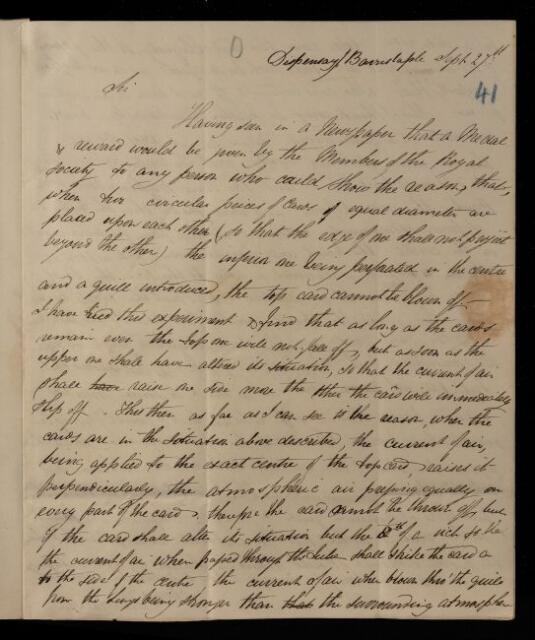 Dispensary Barnstaple Sept 27th
41
Sir
Having seen in a Newspaper that a Medal
& reward would be given by the Members of the Royal
Society to any person who could show the reason, that,
when two circular pieces of Card of equal diameter are
placed upon each other (so that the edge of one shall not project
beyond the other) the inferior one being perforated in the centre
and a quill introduced, the top card cannot be blown off.
I have tried this experiment & find that as long as the cards
remain even the top one will not fall off, but as soon as the
upper one shall have altered its situation, so that the current of air
shall have raise one side more than the other the card will immediately
slip off. This then as far as I can see is the reason, when the
cards are in the situation above described, the current of air,
being applied to the exact centre of the top card, raises it
perpendicularly, the atmospheric air pressing equally on
every part of the card, therefore the card cannot be thrown off, but
if the card shall alter its situation but the 8th of a inch so that
the current of air when passed through the tube shall strike the card a
to the side of the centre the current of air when blown thro' the quill
from the lungs being stronger than that the surrounding atmosphere